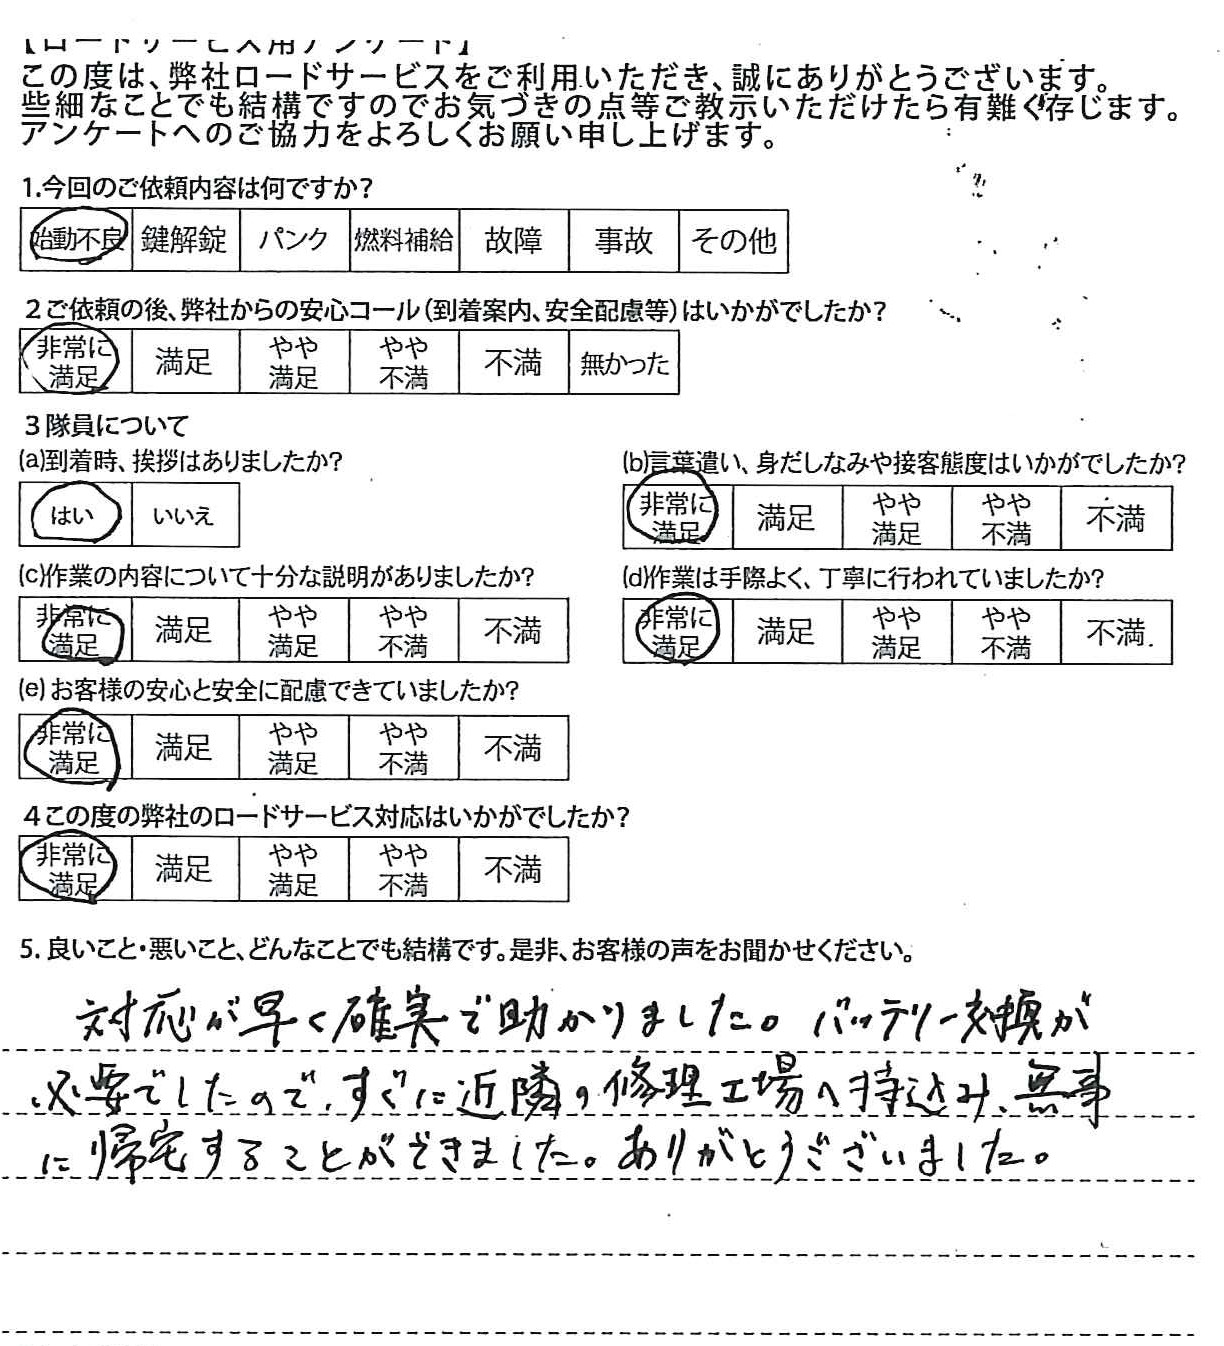 【ロードサービス用アンケート】
この度は、弊社ロードサービスをご利用いただき、誠にありがとうございます。
些細なことでも結構ですのでお気づきの点等ご教示いただけたら有難く存じます。
アンケートへのご協力をよろしくお願い申し上げます。
1.今回のご依頼内容は何ですか?
始動不良 鍵解錠 パンク 燃料補給 故障 事故 その他
2ご依頼の後、弊社からの安心コール(到着案内、安全配慮等)はいかがでしたか?
非常に満足 満足 やや満足 やや不満 不満 無かった
3隊員について
(a)到着時、挨拶はありましたか?
はい いいえ
(b)言葉遣い、身だしなみや接客態度はいかがでしたか?
非常に満足 満足 やや満足 やや不満 不満
(c)作業の内容について十分な説明がありましたか?
非常に満足 満足 やや満足 やや不満 不満
(d)作業は手際よく、丁寧に行われていましたか?
非常に満足 満足 やや満足 やや不満 不満
(e)お客様の安心と安全に配慮できていましたか?
非常に満足 満足 やや満足 やや不満 不満
4この度の弊社のロードサービス対応はいかがでしたか?
非常に満足 満足 やや満足 やや不満 不満
5.良いこと・悪いこと、どんなことでも結構です。是非、お客様の声をお聞かせください。
対応が早く確実で助かりました。バッテリー交換が
必要でしたので、すぐに近隣の修理工場へ持込み、無事
に帰宅することができました。ありがとうございました。